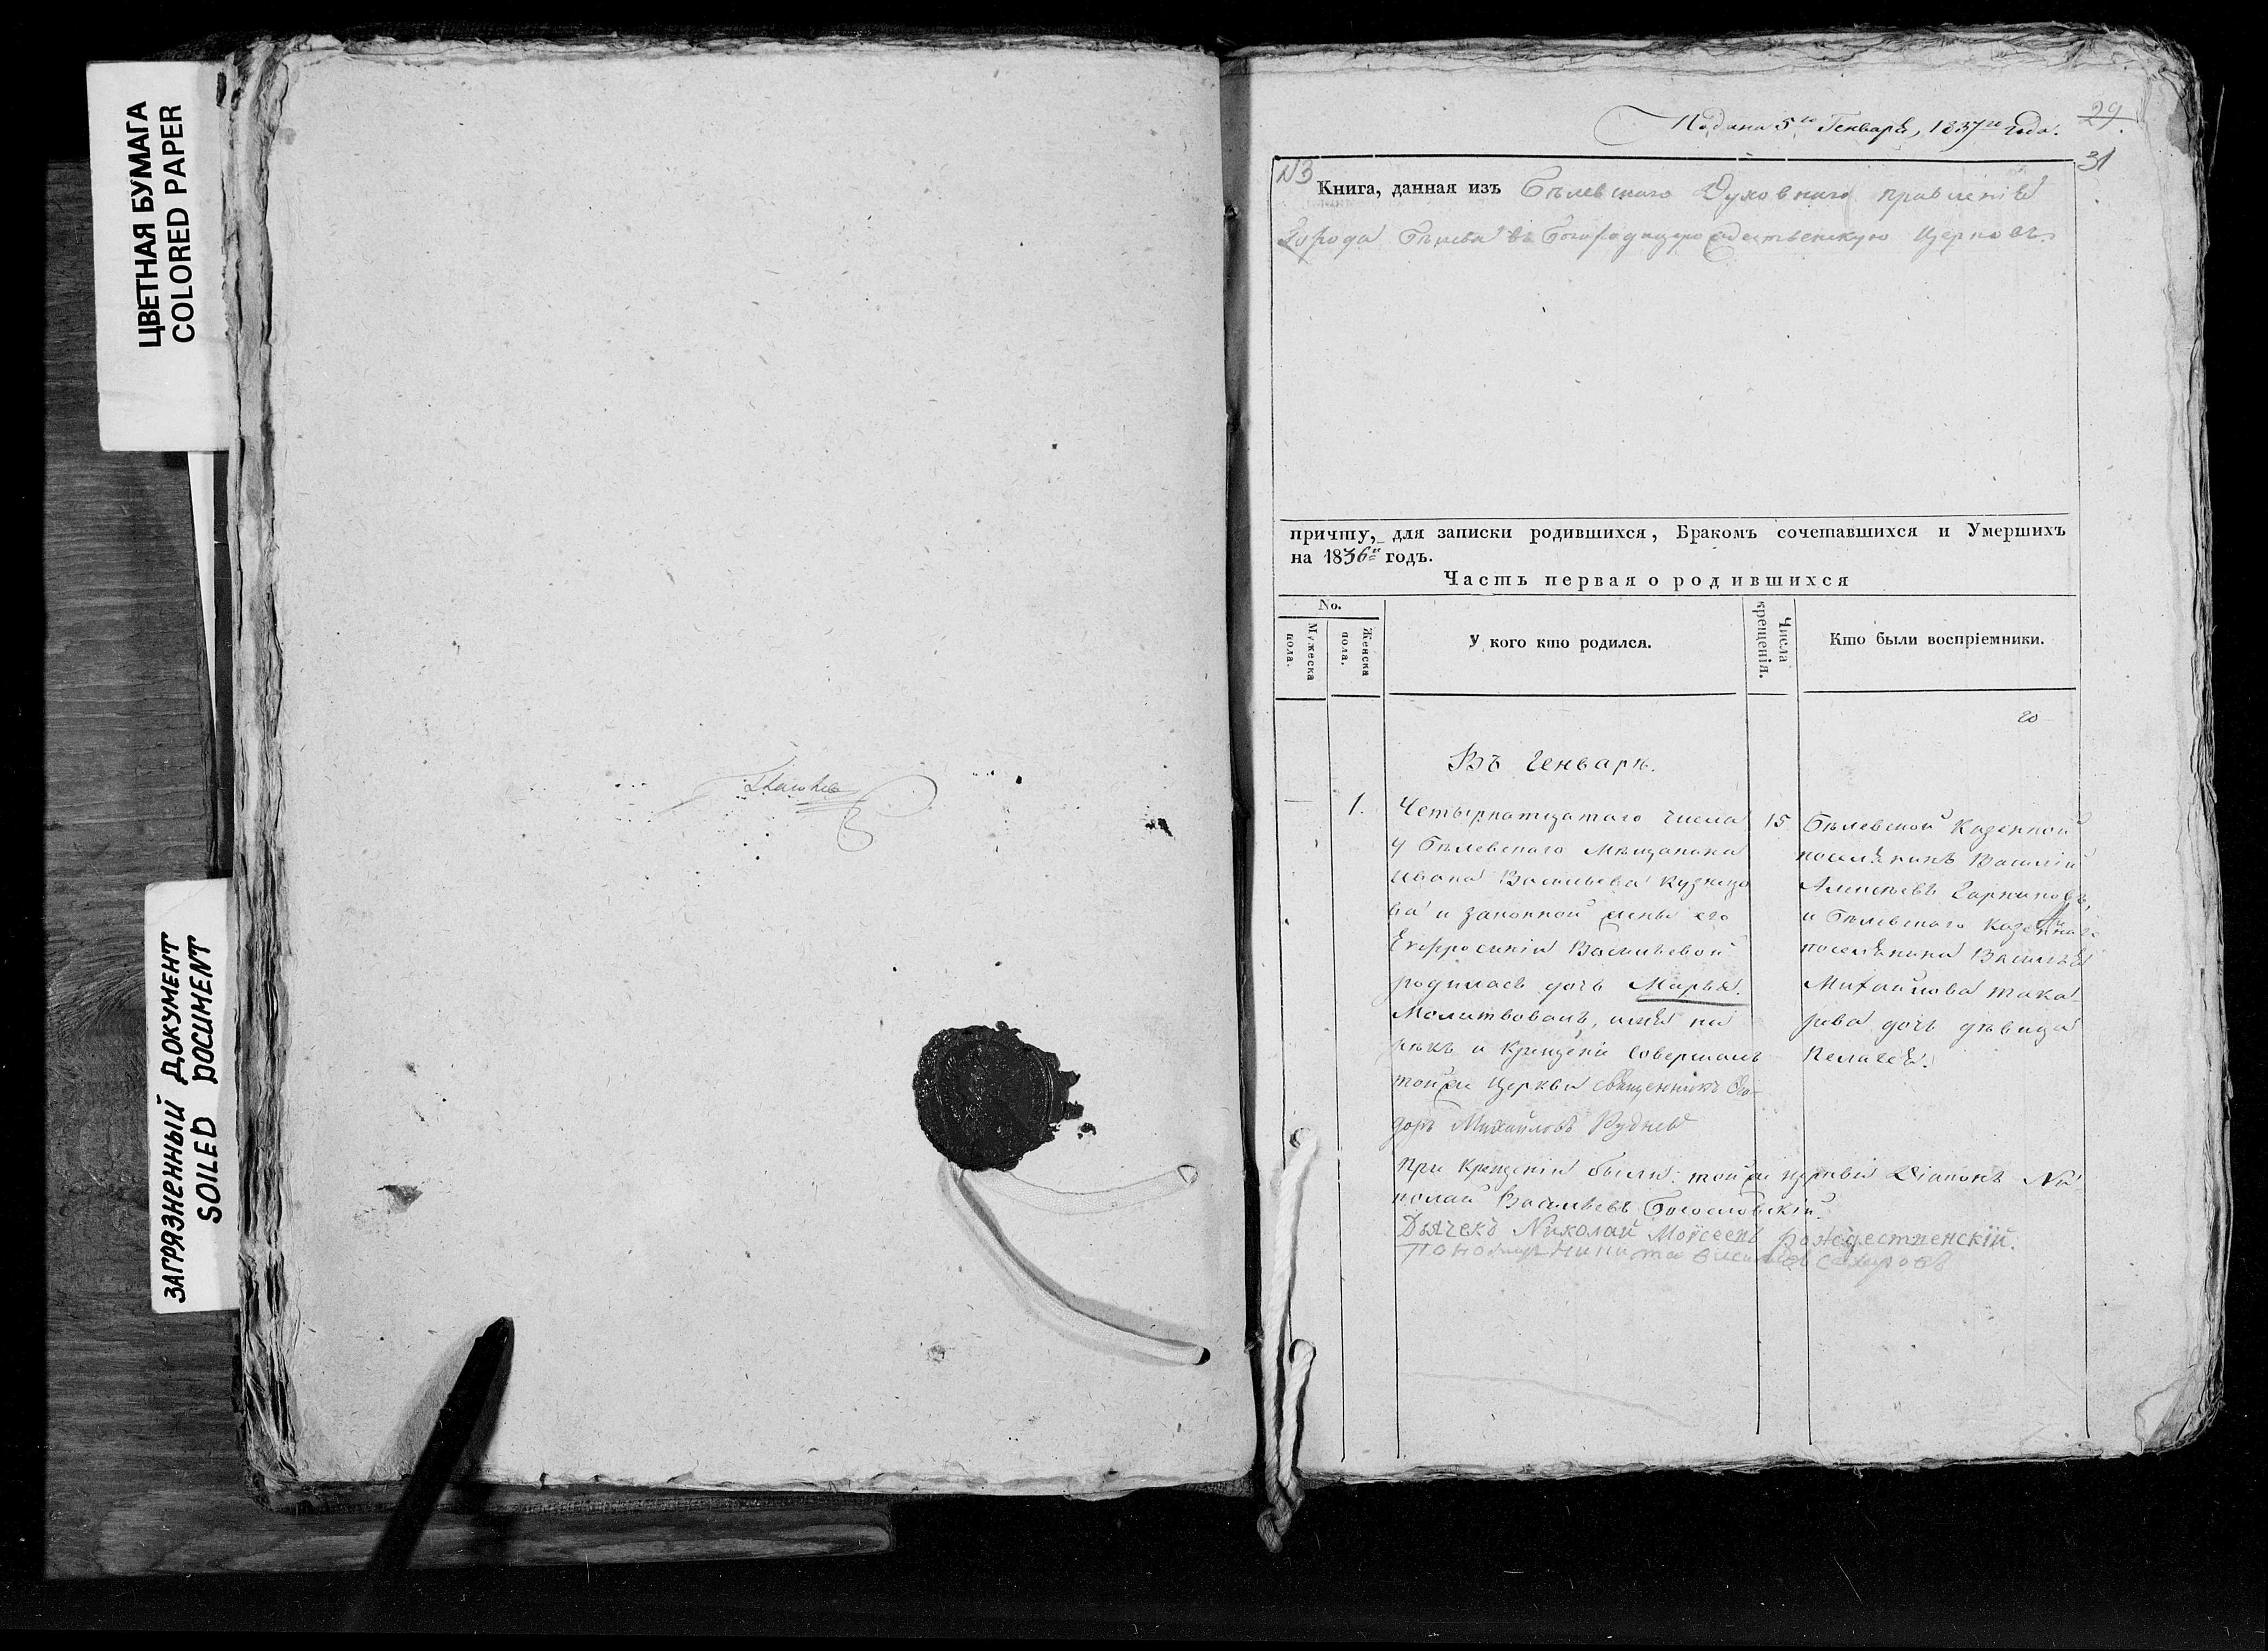 ЦВЕТНАЯ БУМАГА
COLORED PAPER
ЗАГРЯЗНЕННЫЙ ДОКУМЕНТ
SOILED DOCUMENT
Подана 5го Генваря, 1837го года.
29.
31
N3
Книга, данная изъ Бѣлевскаго Духовнаго правленія
Города Бѣлева въ Богородицерождественскую Церковь
причту, для записки родившихся, Бракомъ сочетавшихся и Умершихъ
на 1836й годъ.
Часть первая о родившихся
No.
Мужеска пола.
Женска пола.
У кого кто родился.
Числа крещенія.
Кто были воспріемники.
го
Въ Генварѣ.
1.
Четырнатцатаго числа
у Бѣлевскаго Мѣщанина
Ивана Васильева Кузнецо
ва и законной жены его
Евфросиніи Васильевой
родилась дочь Марья.
Молитвовалъ, имя на
рѣкъ и Крещеніе Совершалъ
тойже Церкви Священникъ Фео-
доръ Михайловъ Рудневъ
15
Бѣлевской Казенной
поселянинъ Василій
Алексѣевъ
и Бѣлевскаго Казеннаго
поселянина Василья
Михайлова Тока
рева дочь дѣвица
Пелагея.
При Крещеніи были: тойже церкви Діаконъ Ни
колай Васильевъ Богословскій.
Дьячекъ Николай Моѵсеевъ Рождественскій.
Пономарь Никита Сахаровъ